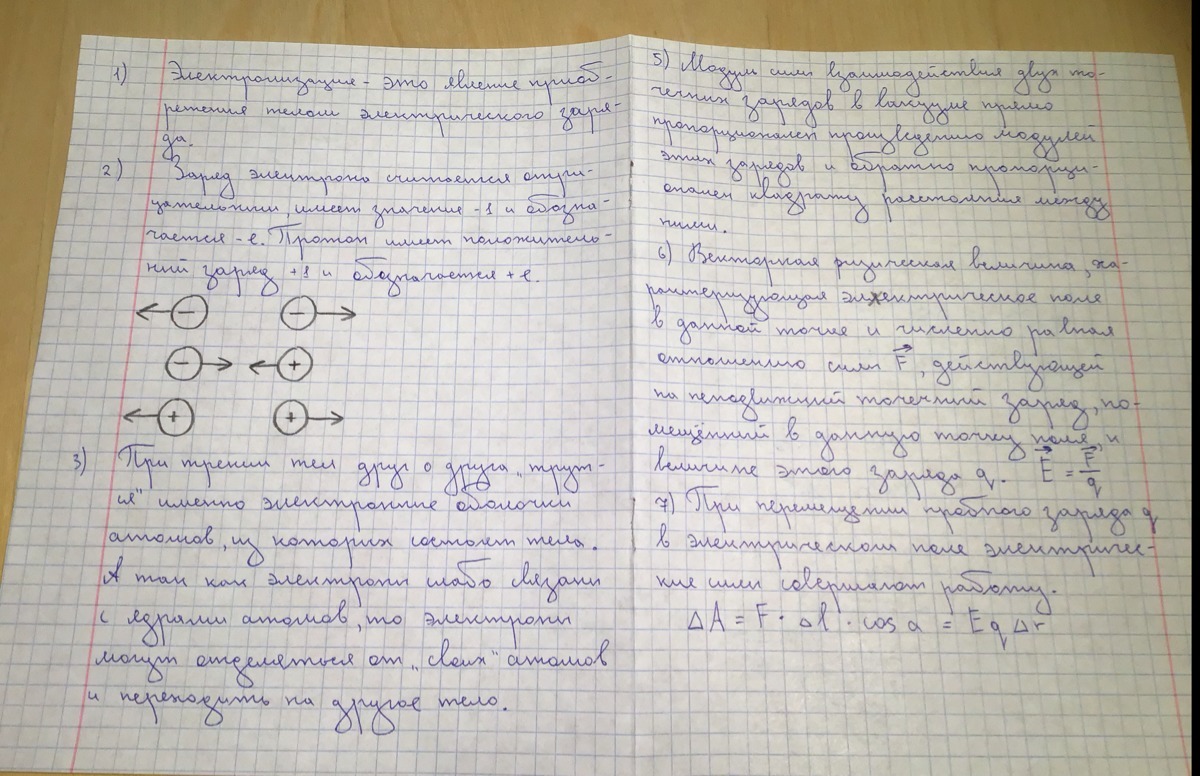 1) Электролизация - это явление приоб-
ретения телом электрического заря-
да.
2) Заряд электрона считается отри-
цательным, имеет значение -1 и обозна-
чается -е. Протон имеет положитель-
ный заряд +1 и обозначается +е.
← - - →
- → ← +
← + + →
3) При трении тел друг о друга „трут-
ся" именно электронные оболочки
атомов, из которых состоят тела.
А так как электроны слабо связаны
с ядрами атомов, то электроны
могут отделяться от „своих" атомов
и переходить на другое тело.
5) Модуль силы взаимодействия двух то-
чечных зарядов в вакууме прямо
пропорционален произведению модулей
этих зарядов и обратно пропорци-
онален квадрату расстояния между
ними.
6) Векторная физическая величина, ха-
рактеризующая электрическое поле
в данной точке и численно равная
отношению силы F⃗, действующей
на неподвижный точечный заряд, по-
мещённый в данную точку поля, к
величине этого заряда q. E⃗ = F⃗/q
7) При перемещении пробного заряда q
в электрическом поле электричес-
кие силы совершают работу.
ΔA = F · Δl · cos α = E q Δr